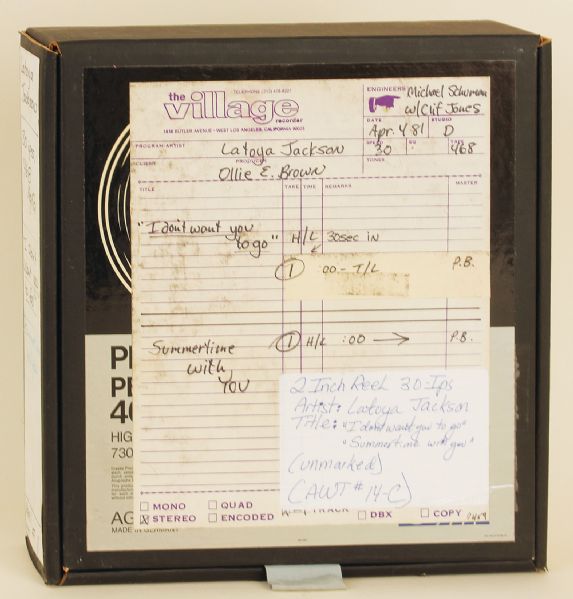 the village recorder
TELEPHONE (213) 478-8227
1616 BUTLER AVENUE • WEST LOS ANGELES, CALIFORNIA 90025
ENGINEERS
Michael Schuman
w/Clif Jones
DATE STUDIO
Apr. 4 81 D
SPEED EQ TAPE
30 468
TONES
PROGRAM-ARTIST
Latoya Jackson
CLIENT PRODUCER
Ollie E. Brown
TITLE TAKE TIME REMARKS MASTER
"I don't want you
to go" H/L 30sec in
1 :00 - T/L P.B.
Summertime 1 H/L :00 → P.B.
with
you
2 Inch Reel 30-Ips
Artist: Latoya Jackson
Title: "I dont want you to go"
"Summertime with you"
(unmarked)
(AWT # 14-C)
MONO QUAD
STEREO ENCODED TRACK DBX COPY
HIG
730
AG
MADE IN GERMANY